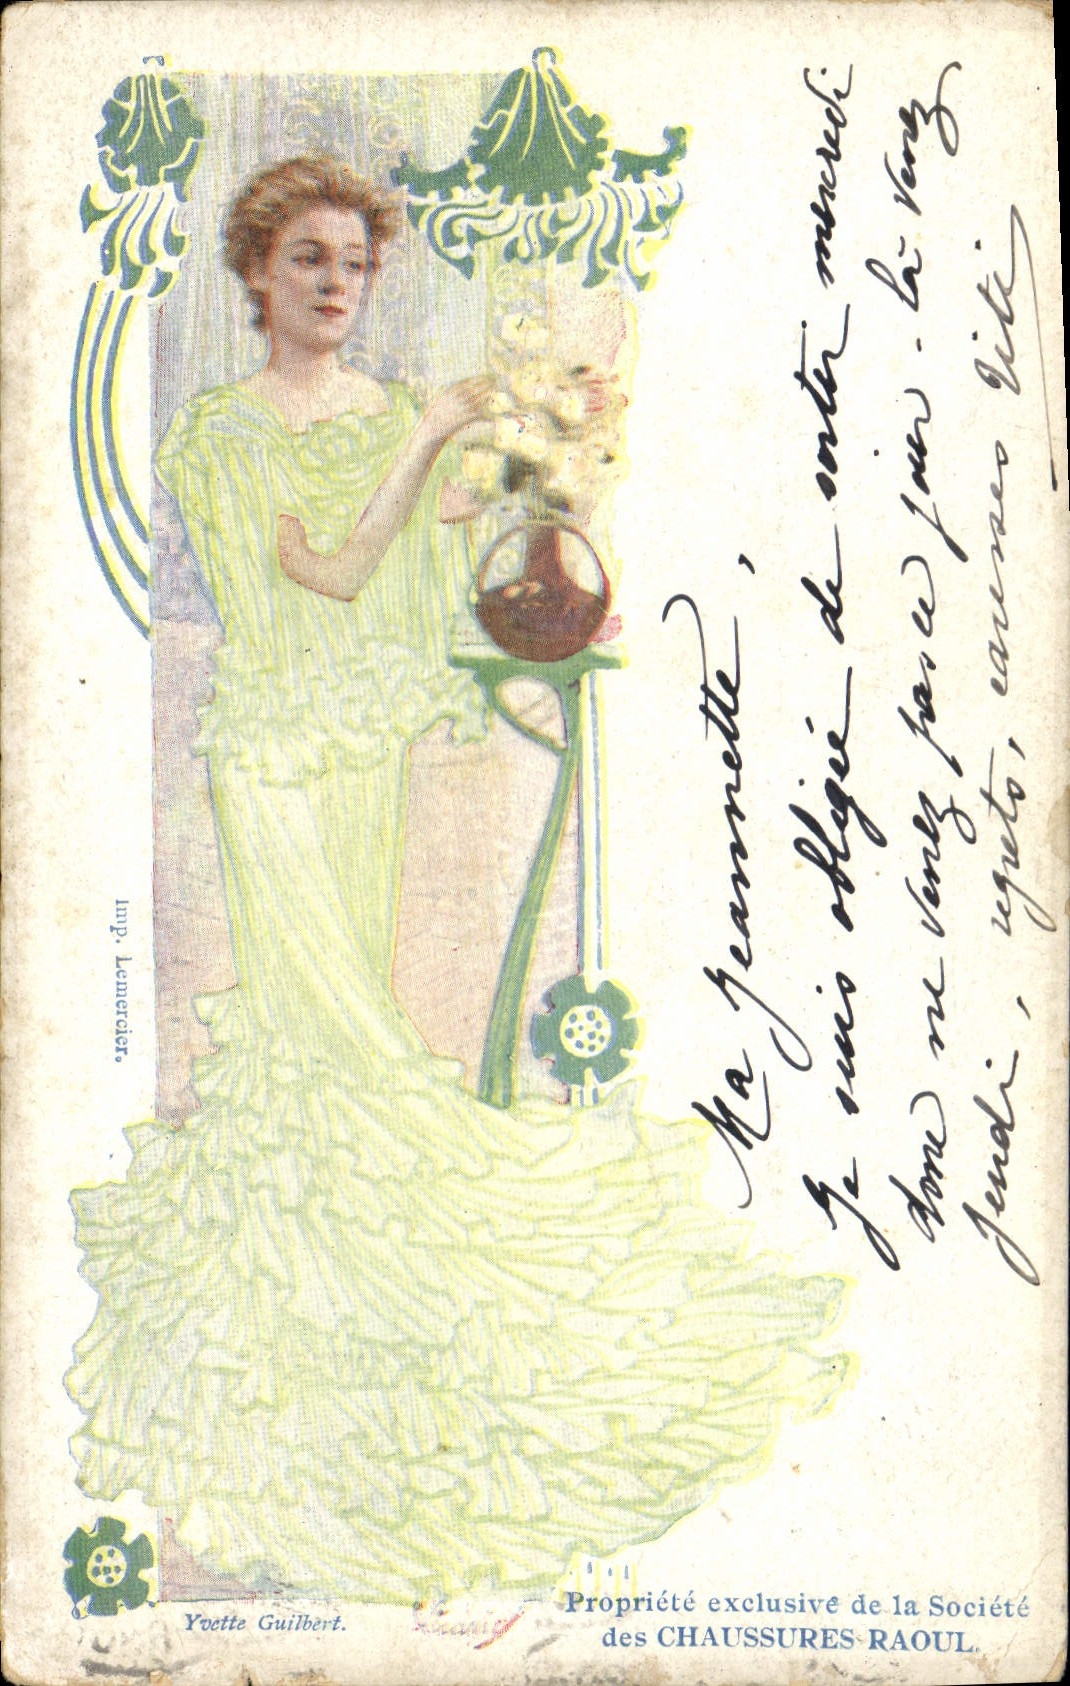 Ma Jeannette,
Je suis obligée de sortir mercredi
donc ne venez pas ce jour-là venez
jeudi, regrets, caresses Titi
Imp. Lemercier.
Yvette Guilbert.
Propriété exclusive de la Société
des CHAUSSURES RAOUL.